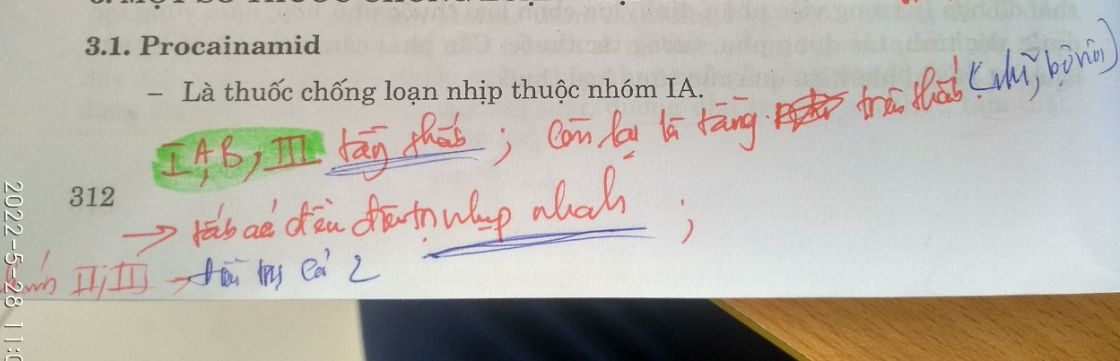 3.1. Procainamid
– Là thuốc chống loạn nhịp thuộc nhóm IA.
I A, B, III tầng thất ; Còn lại là tầng trên thất (nhĩ, bộ nối)
312
→ tất cả đều điều trị nhịp nhanh ;
II, III → điều trị cả 2
2022-5-28 11:0